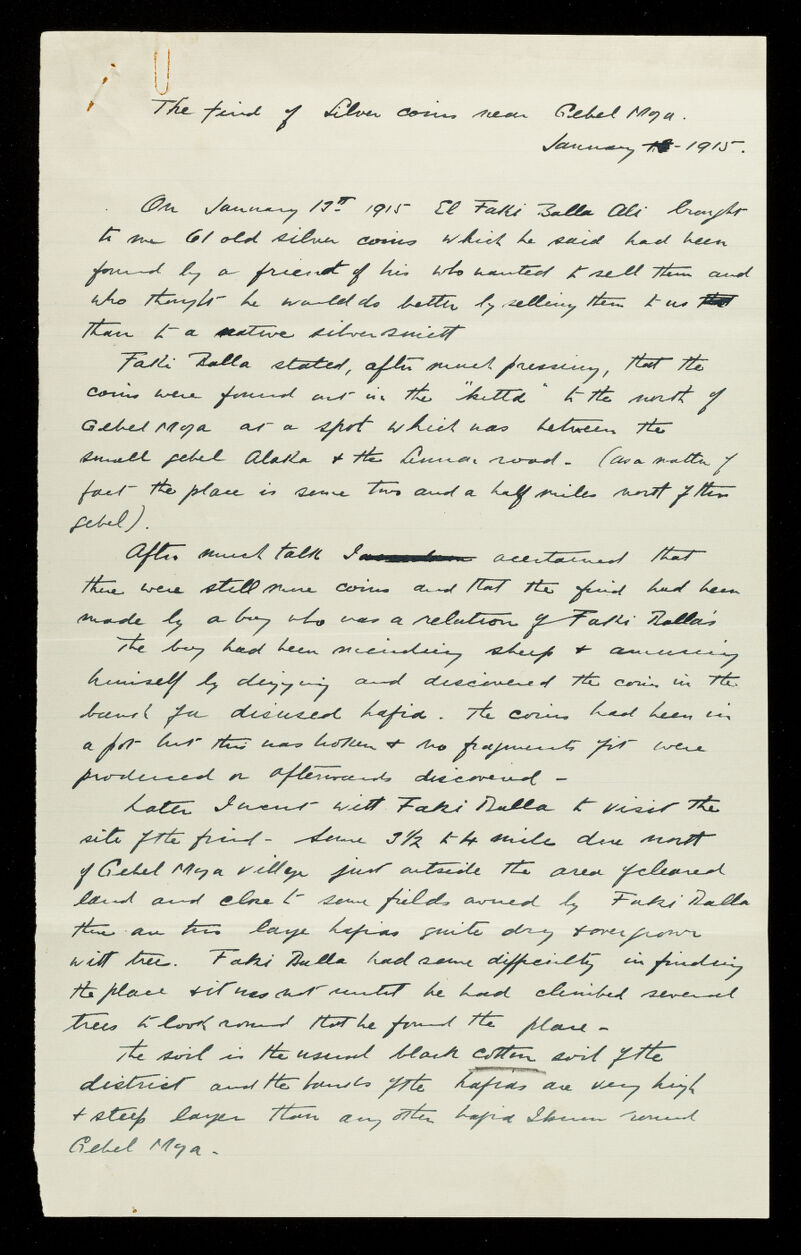 The find of Silver coins near Gebel Moya.
January 1915.
On January 17th 1915 El Faki Balla Ali brought
to me 61 old silver coins which he said had been
found by a friend of his who wanted to sell them and
who thought he would do better by selling them to us
than to a native silversmith
Faki Balla stated, after much pressing, that the
coins were found out in the "hilla" to the north of
Gebel Moya at a spot which was between the
small gebel Alaka & the Sennar road - (as a matter of
fact the place is some two and a half miles north of this
gebel).
After much talk I acertained that
there were still more coins and that the find had been
made by a boy who was a relation of Faki Balla's
The boy had been minding sheep & amusing
himself by digging and discovered the coins in the
bank of a disused hafia. The coins had been in
a pot but this was broken & no fragments of it were
produced or afterwards discovered -
Later I went with Faki Balla to visit the
site of the find - Some 3½ to 4 mile due north
of Gebel Moya village just outside the area of cleared
land and close to some fields owned by Faki Balla
there are two large hafias quite dry & overgrown
with trees. Faki Balla had some difficulty in finding
the place & it was not until he had climbed several
trees to look round that he found the place -
The soil is the usual black cotton soil of the
district and the banks of the hafias are very high
& steep larger than any other hafia I know round
Gebel Moya -